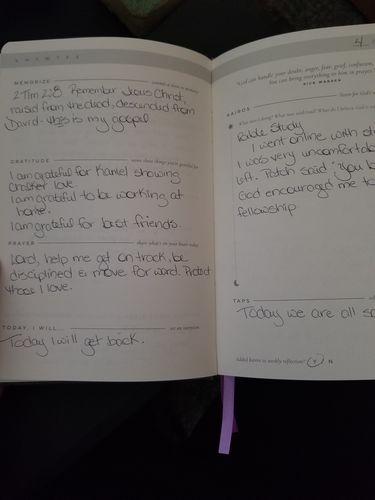 MEMORIZE
commit a verse to memory
2 Tim 2:8 Remember Jesus Christ,
raised from the dead, descended from
David - this is my gospel.
GRATITUDE
I am grateful for Kamel showing
another love.
I am grateful to be working at
home.
I am grateful for best friends.
PRAYER
share what's on your heart today
Lord, help me get on track, be
disciplined & move forward. Protect
those I love.
TODAY, I WILL...
set an intention
Today I will get back.
God can handle your doubt, anger, fear, grief, confusion,
You can bring everything to him in prayer.
RICK WARREN
KAIROS
Bible Study
I went online with st
I was very uncomfortab
left. Patch said "You b
God encouraged me to
fellowship.
TAPS
Today we are all so
Added kairos to weekly reflection? Y N